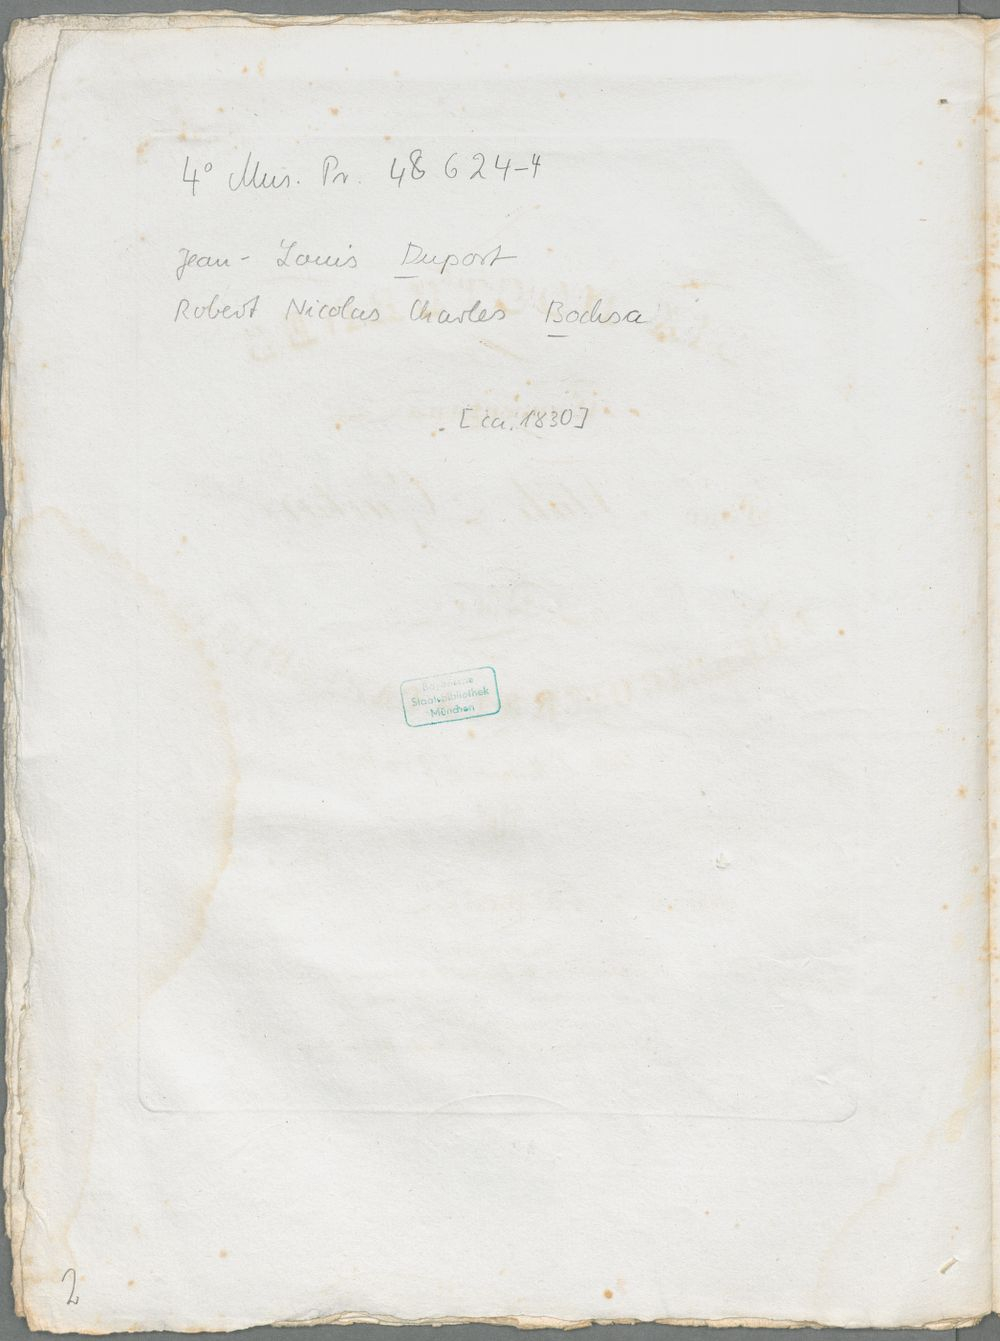 4° Mus. Pr. 48 624-4
Jean-Louis Duport
Robert Nicolas Charles Bochsa
[ca. 1830]
Bayerische
Staatsbibliothek
München
2